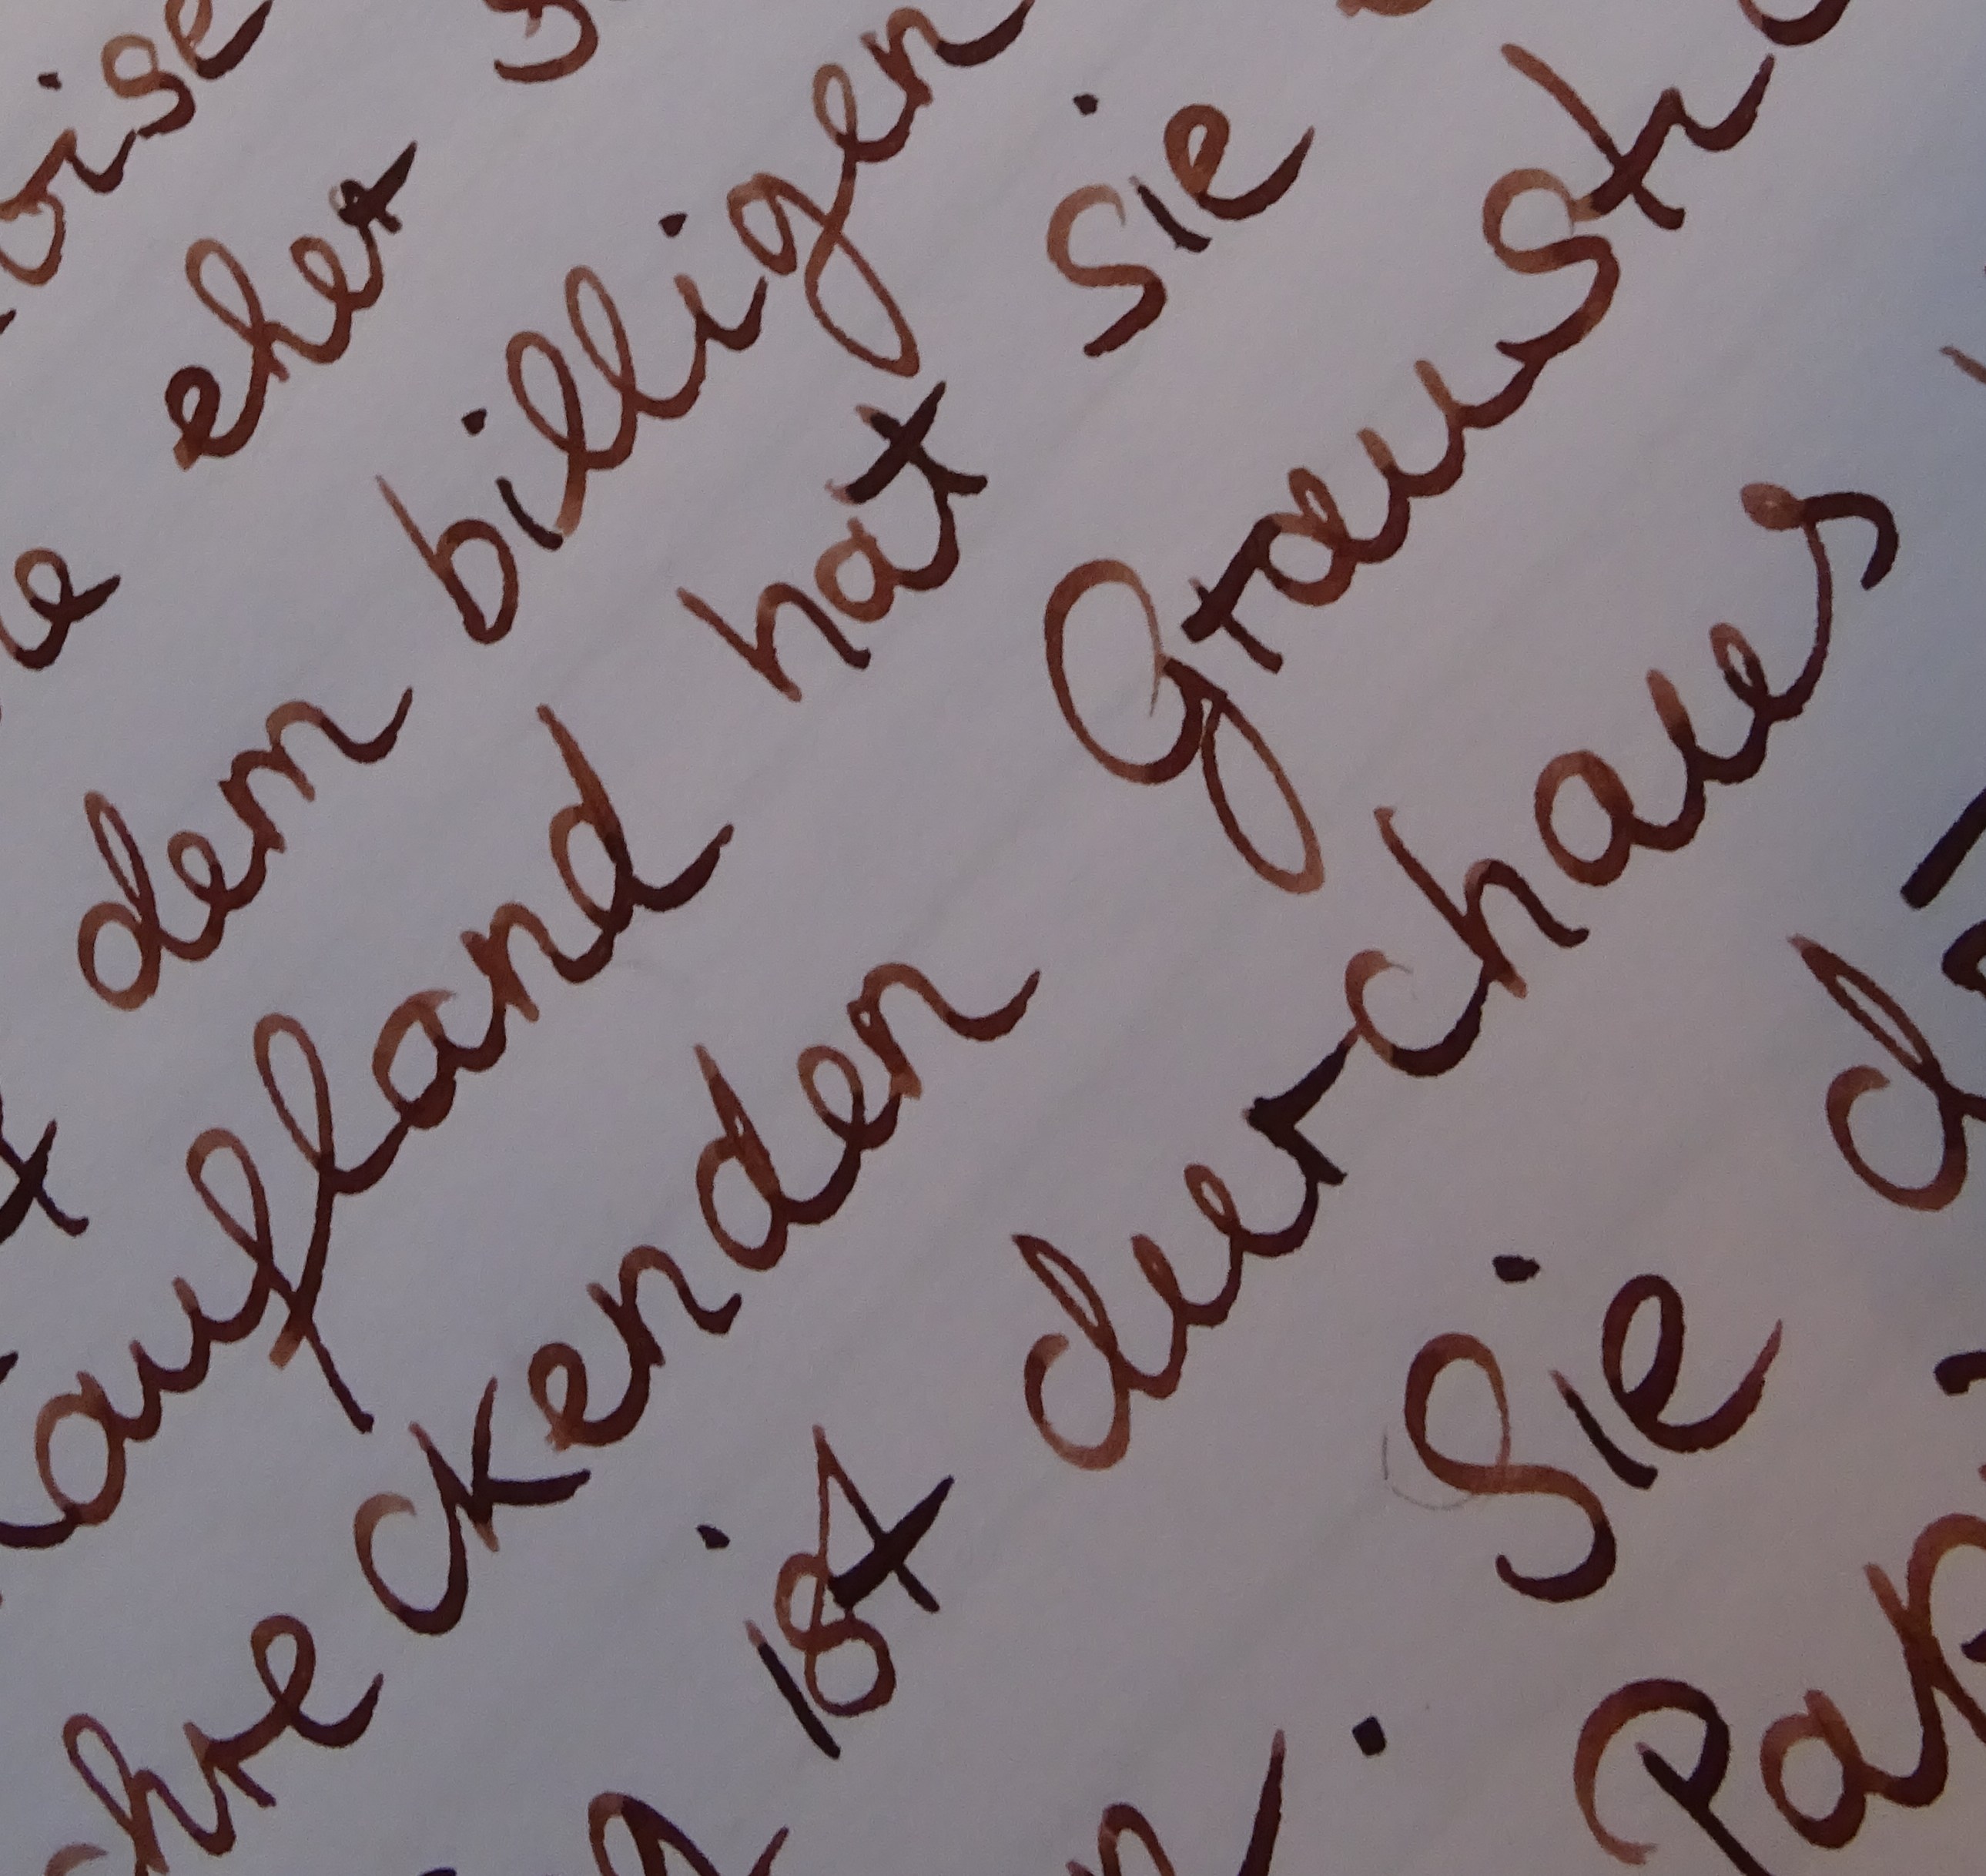 oise
eher
dem billigen
aufland hat Sie
chreckenden Graust
ist durchaus
. Sie
Pap